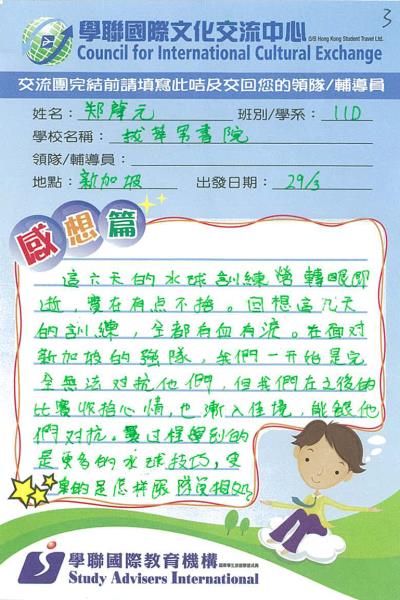 3
學聯國際文化交流中心 O/B Hong Kong Student Travel Ltd.
Council for International Cultural Exchange
交流團完結前請填寫此咭及交回您的領隊/輔導員
姓名: 郑聲元 班別/學系: 11D
學校名稱: 拔萃男書院
領隊/輔導員:
地點: 新加坡 出發日期: 29/3
感想篇
這六天的水球訓練營轉眼即
逝,實在有点不捨。回想這几天
的訓練,全都有血有淚。在面对
新加坡的強隊,我們一开始是完
全無法对抗他們,但我們在之後的
比賽收拾心情,也漸入佳境,能跟他
們对抗。過程學到的
是更多的水球技巧,更
的是怎样跟隊員相处
學聯國際教育機構
Study Advisers International